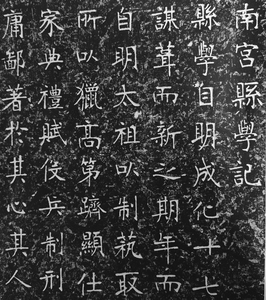 南宮縣學記
縣學自明成化十七
謀葺而新之期年而
自明太祖以制埶取
所以獵高第躋顯仕
家典禮賦役兵制刑
庸鄙著於其心其人